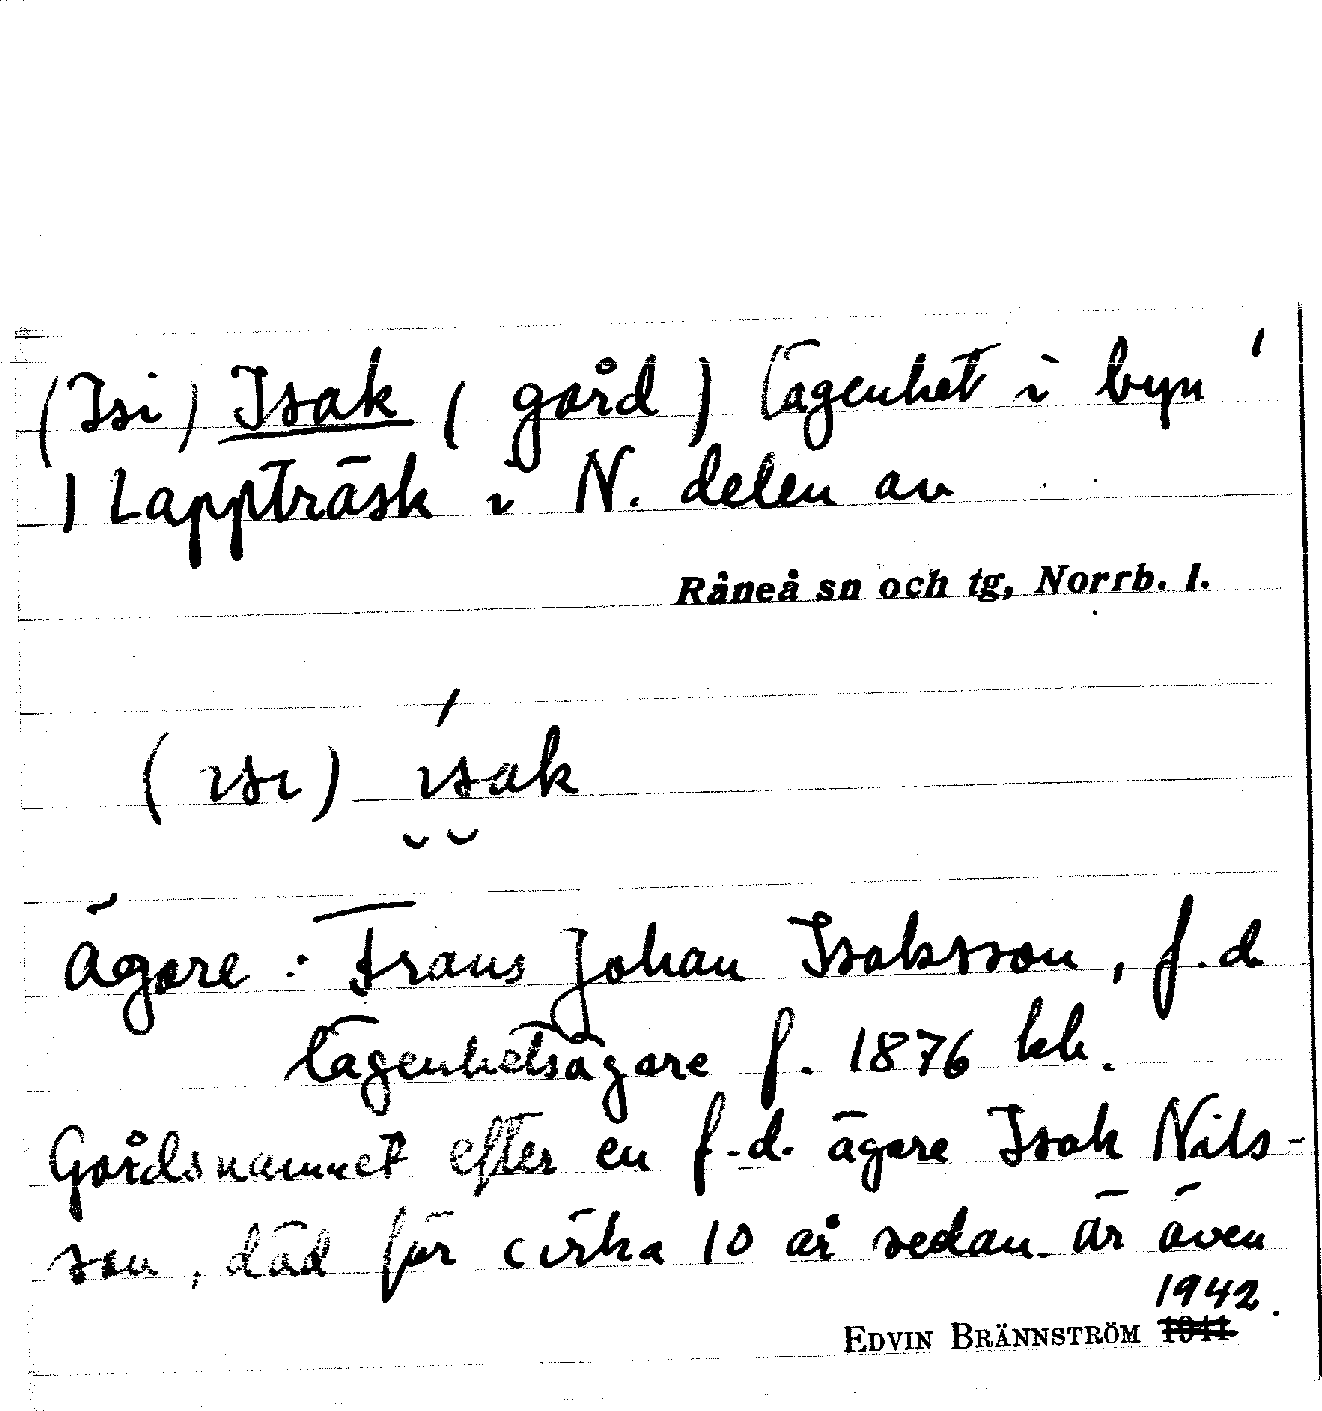 (Isi) Isak ( gård ) lägenhet i byn
Lappträsk i N. delen av
Råneå sn och tg, Norrb. l.
(ısı) ísak
Ägare : Frans Johan Isaksson, f.d
lägenhetsägare f. 1876 hh.
Gårdsnamnet efter en f.d. ägare Isak Nils-
son, död för cirka 10 år sedan. Är även
1942.
EDVIN BRÄNNSTRÖM 1941